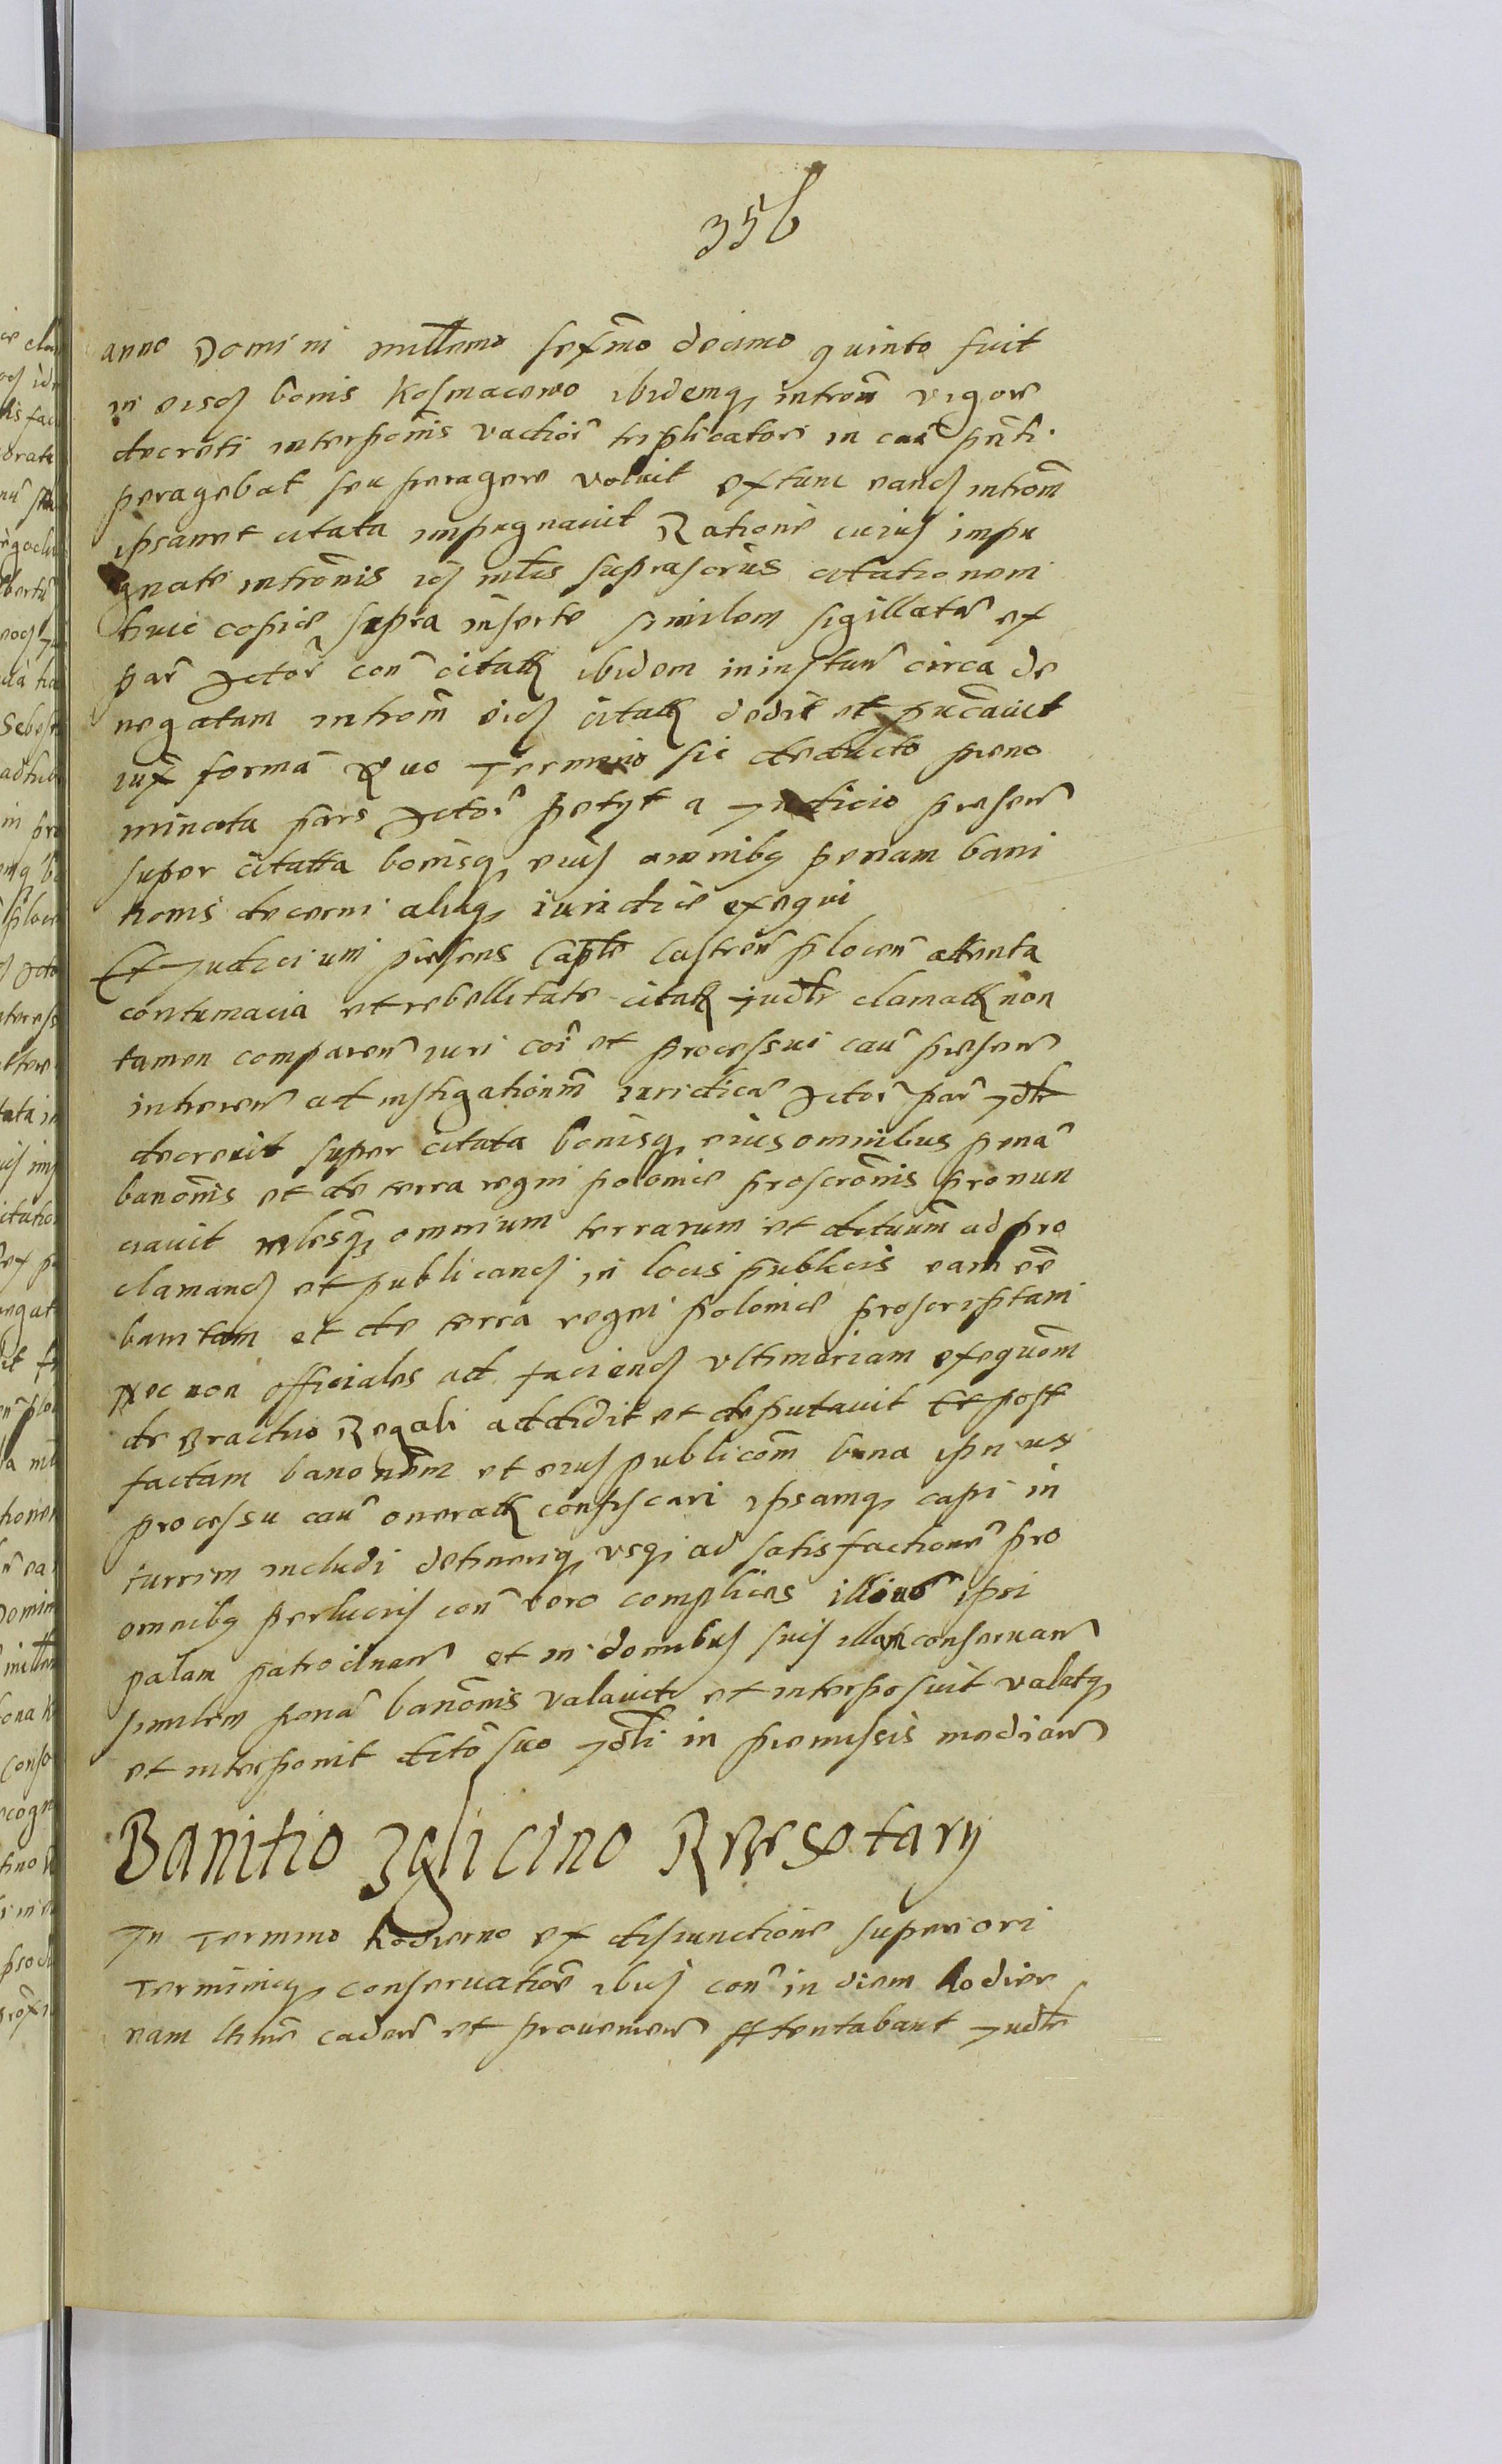 356
anno Domini millemo sexmo decimo quinto fuit
in eisd bonis Kosmacewo ibidemq introm vigore
decreti interponis vadior triplicatore in cau pnti
peragebat seu peragere voluit extunc eand introm
ipsamet citata impugnavit Ratione cuius impu
gnate intromis id mlis suprascrius citationem
huic copie supra inserte similem sigillatam ex
par Actor con citatk ibidem in instan circa de
negatam introm eid citatk dedit et pncavit
iux forma Quo Termino sic deducto preno
minata pars Actor petyt a Judicio presen
super citatta bonisq eius omnibq penam bani
tionis decerni aliaq iuridice exequi
Et Judicium presens Caple Castren plocen attenta
contumacia et rebellitate citatk judlr clamatk non
tamen comparen iuri coi et processui cau presen
inheren ad instigationem iuridica Actor par
decrevit super citata bonisq eius omnibus pena
banonis et de terra regni polonie proscronis pronun
ciavit omnium terrarum et ditium ad pro
clamand et publicand in locis publicis eam ee
banitam et de terra regni polonie proscriptam
Nec non officiales ad faciend ultimariam exequom
de Brachio Regali addidit et deputavit Et post
factam banonem et eius publicom bona ipsius
processu cau oneratk confiscari ipsamq capi in
turrim includi detineriq usq ad satisfactione pro
omnibq perlucris con vero complices illius ipsi
palam patrocinan et in domibus suis illam conservan
similem pena banonis valavit et interposuit valatq
et interponit dcto suo in premissis median
Banitio Zglicino Rzesotary
In Termino hodierno ex disiunctione superiori
Terminiq conservatioe ibid con in diem hodier
nam caden et provenien attentabant judlr